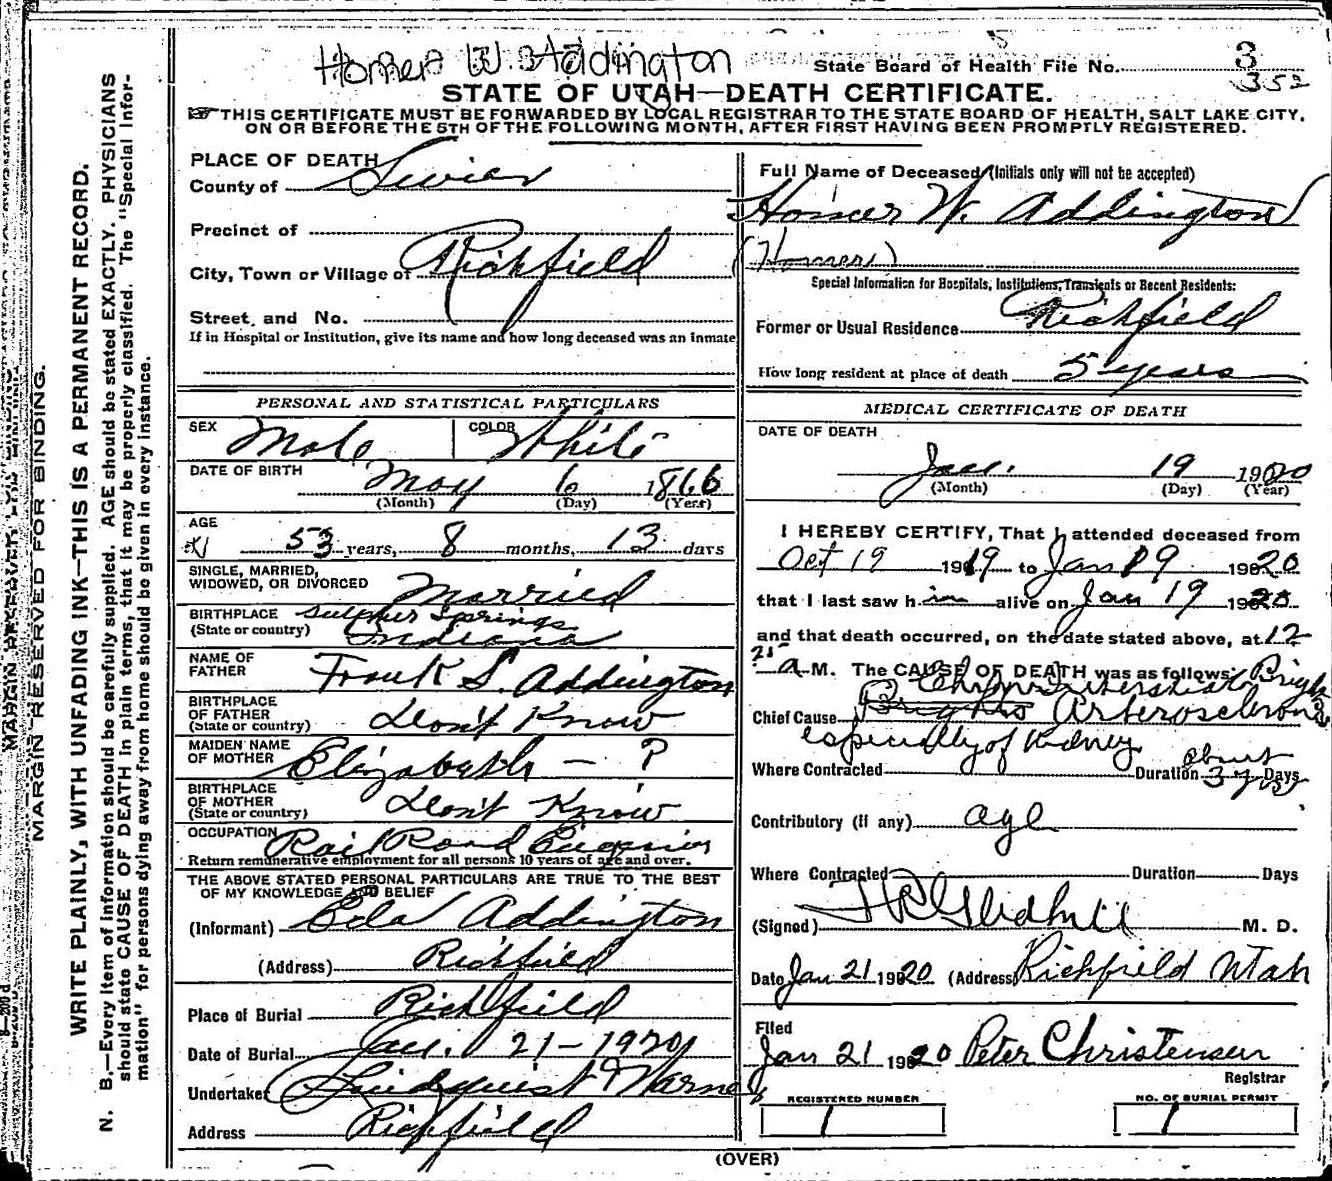 Homer W. Addington
State Board of Health File No. 3
352
STATE OF UTAH—DEATH CERTIFICATE.
THIS CERTIFICATE MUST BE FORWARDED BY LOCAL REGISTRAR TO THE STATE BOARD OF HEALTH, SALT LAKE CITY,
ON OR BEFORE THE 5TH OF THE FOLLOWING MONTH, AFTER FIRST HAVING BEEN PROMPTLY REGISTERED.
MARGIN RESERVED FOR BINDING.
WRITE PLAINLY, WITH UNFADING INK—THIS IS A PERMANENT RECORD.
N. B.—Every item of information should be carefully supplied. AGE should be stated EXACTLY. PHYSICIANS
should state CAUSE OF DEATH in plain terms, that it may be properly classified. The "Special Infor-
mation" for persons dying away from home should be given in every instance.
PLACE OF DEATH
County of Sevier
Precinct of
City, Town or Village of Richfield
Street, and No.
If in Hospital or Institution, give its name and how long deceased was an inmate
PERSONAL AND STATISTICAL PARTICULARS
SEX Male COLOR White
DATE OF BIRTH
May 6 1866
(Month) (Day) (Year)
AGE
53 years, 8 months, 13 days
SINGLE, MARRIED,
WIDOWED, OR DIVORCED Married
BIRTHPLACE Sulphur Springs
(State or country) Indiana
NAME OF
FATHER Frank S. Addington
BIRTHPLACE
OF FATHER Don't Know
(State or country)
MAIDEN NAME
OF MOTHER Elizabeth — ?
BIRTHPLACE
OF MOTHER Don't Know
(State or country)
OCCUPATION Rail Road Engineer
Return remunerative employment for all persons 10 years of age and over.
THE ABOVE STATED PERSONAL PARTICULARS ARE TRUE TO THE BEST
OF MY KNOWLEDGE AND BELIEF
(Informant) Eda Addington
(Address) Richfield
Place of Burial Richfield
Date of Burial Jan. 21-1920
Undertaker Lindquist & Warne
Address Richfield
Full Name of Deceased (Initials only will not be accepted)
Homer W. Addington
(Homer)
Special Information for Hospitals, Institutions, Transients or Recent Residents:
Former or Usual Residence Richfield
How long resident at place of death 5 years
MEDICAL CERTIFICATE OF DEATH
DATE OF DEATH
Jan. 19 1920
(Month) (Day) (Year)
I HEREBY CERTIFY, That I attended deceased from
Oct 19 1919 to Jan 19 1920
that I last saw him alive on Jan 19 1920
and that death occurred, on the date stated above, at 12
25 a M. The CAUSE OF DEATH was as follows:
Chr Interstitial Brights
Chief Cause Brights Arterosclerosis
especially of Kidney
Where Contracted Duration about 3 yrs Days
Contributory (if any) age
Where Contracted Duration Days
(Signed) H R Gledhill M. D.
Date Jan 21 1920 (Address) Richfield Utah
Filed
Jan 21 1920 Peter Christensen
Registrar
REGISTERED NUMBER NO. OF BURIAL PERMIT
1 1
(OVER)